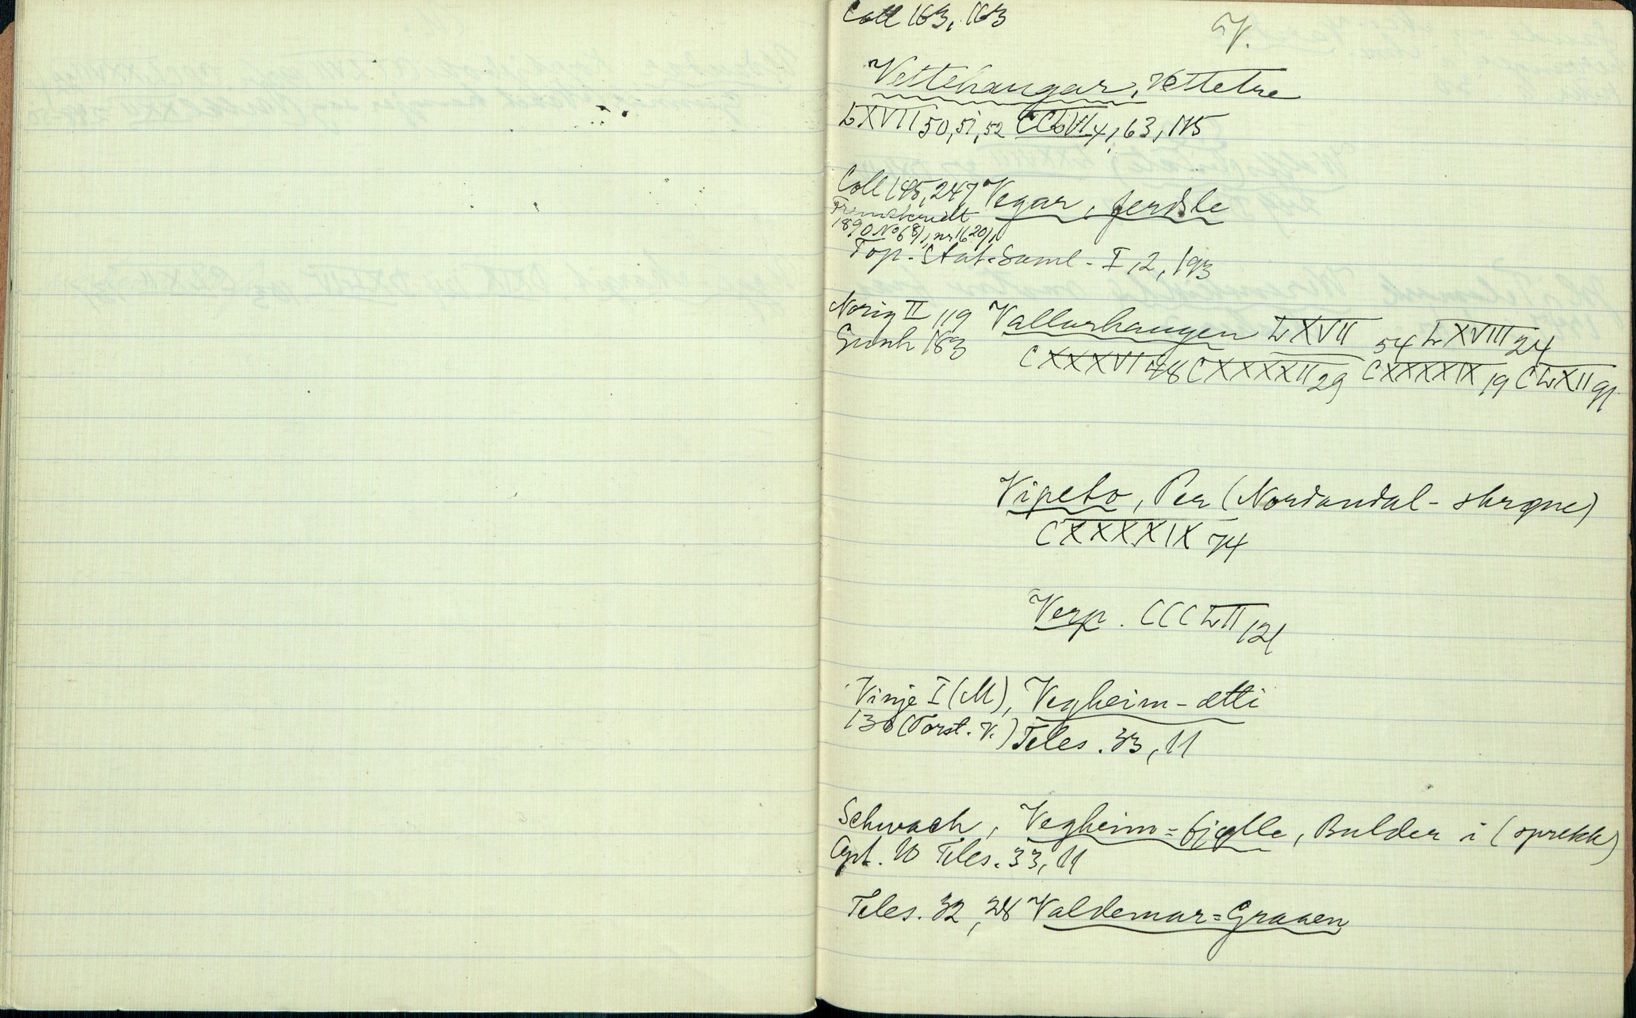 Coll 163, 163
V.
Vettehaugar, Vettetre
LXVII 50, 51, 52 CCLVI 4, 63, 115
Coll 195, 247 Vegar, ferdsle
1890 No 68
Top. Stat. Saml. I, 2, 193
Norig II 119 Vallarhaugen LXVII 54 LXVIII 24
183 CXXXVI 78 CXXXXII 29 CXXXXIX 19 CLXII 91
Vipeto, Per (Nordandal-skrøne)
CXXXXIX 74
Verp. CCCLII 121
Vinje I (M), Vegheim-ætti
130 (Torst. V.) Teles. 33, 11
Schwach, Vegheim=fjølle, Bulder i (sprekk)
Teles. 33, 11
Teles. 32, 28 Valdemar=Graaen